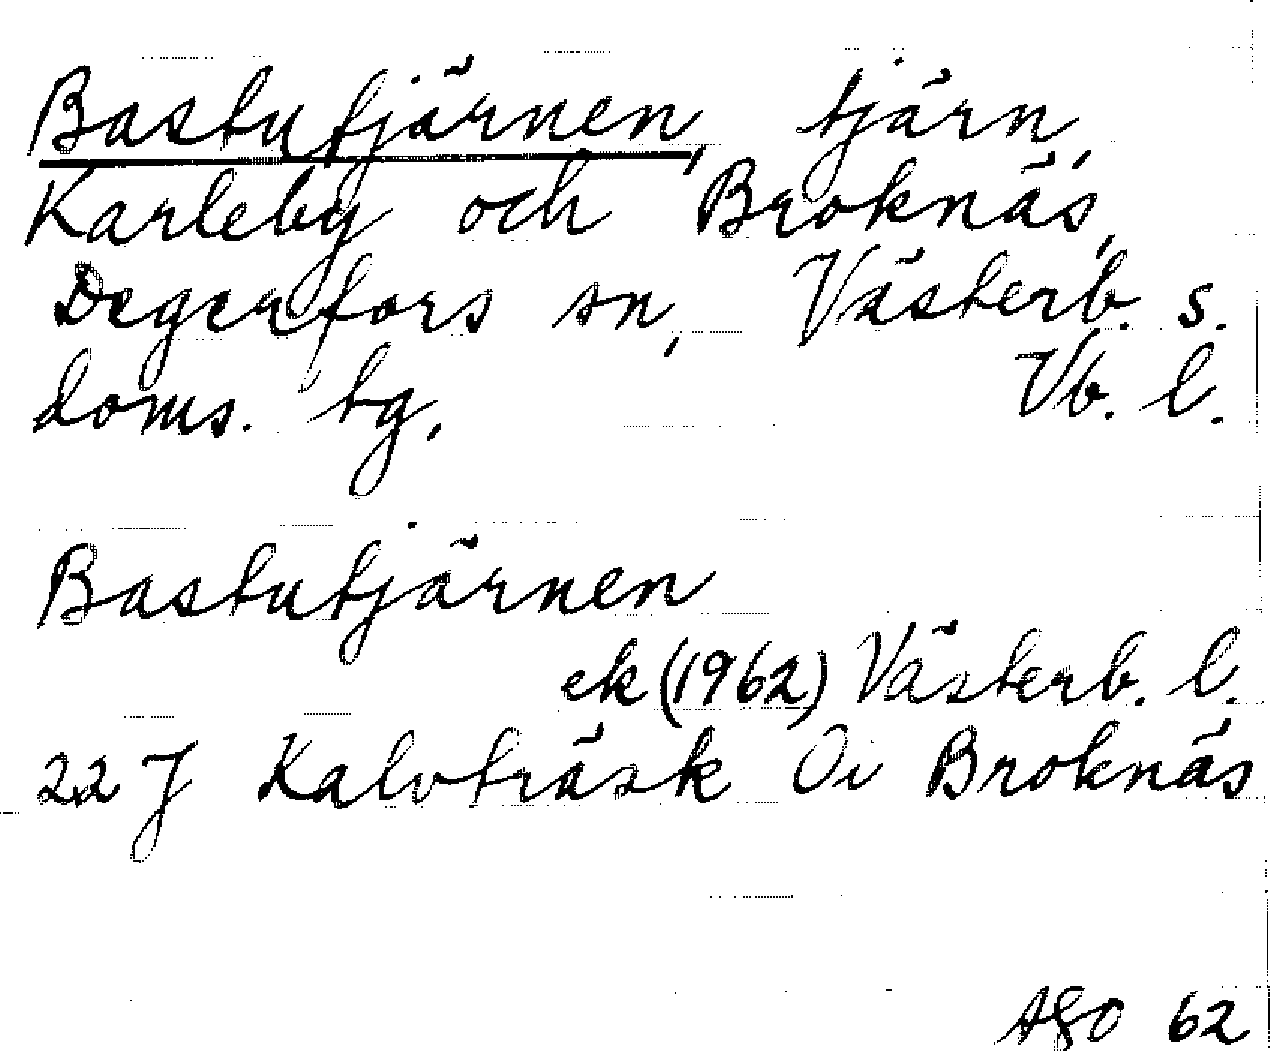 Bastutjärnen, tjärn,
Karleby och Broknäs,
Degerfors sn, Västerb. s.
doms. tg, Vb. l.
Bastutjärnen
ek (1962) Västerb. l.
22 J Kalvträsk Oi Broknäs
ASO 62